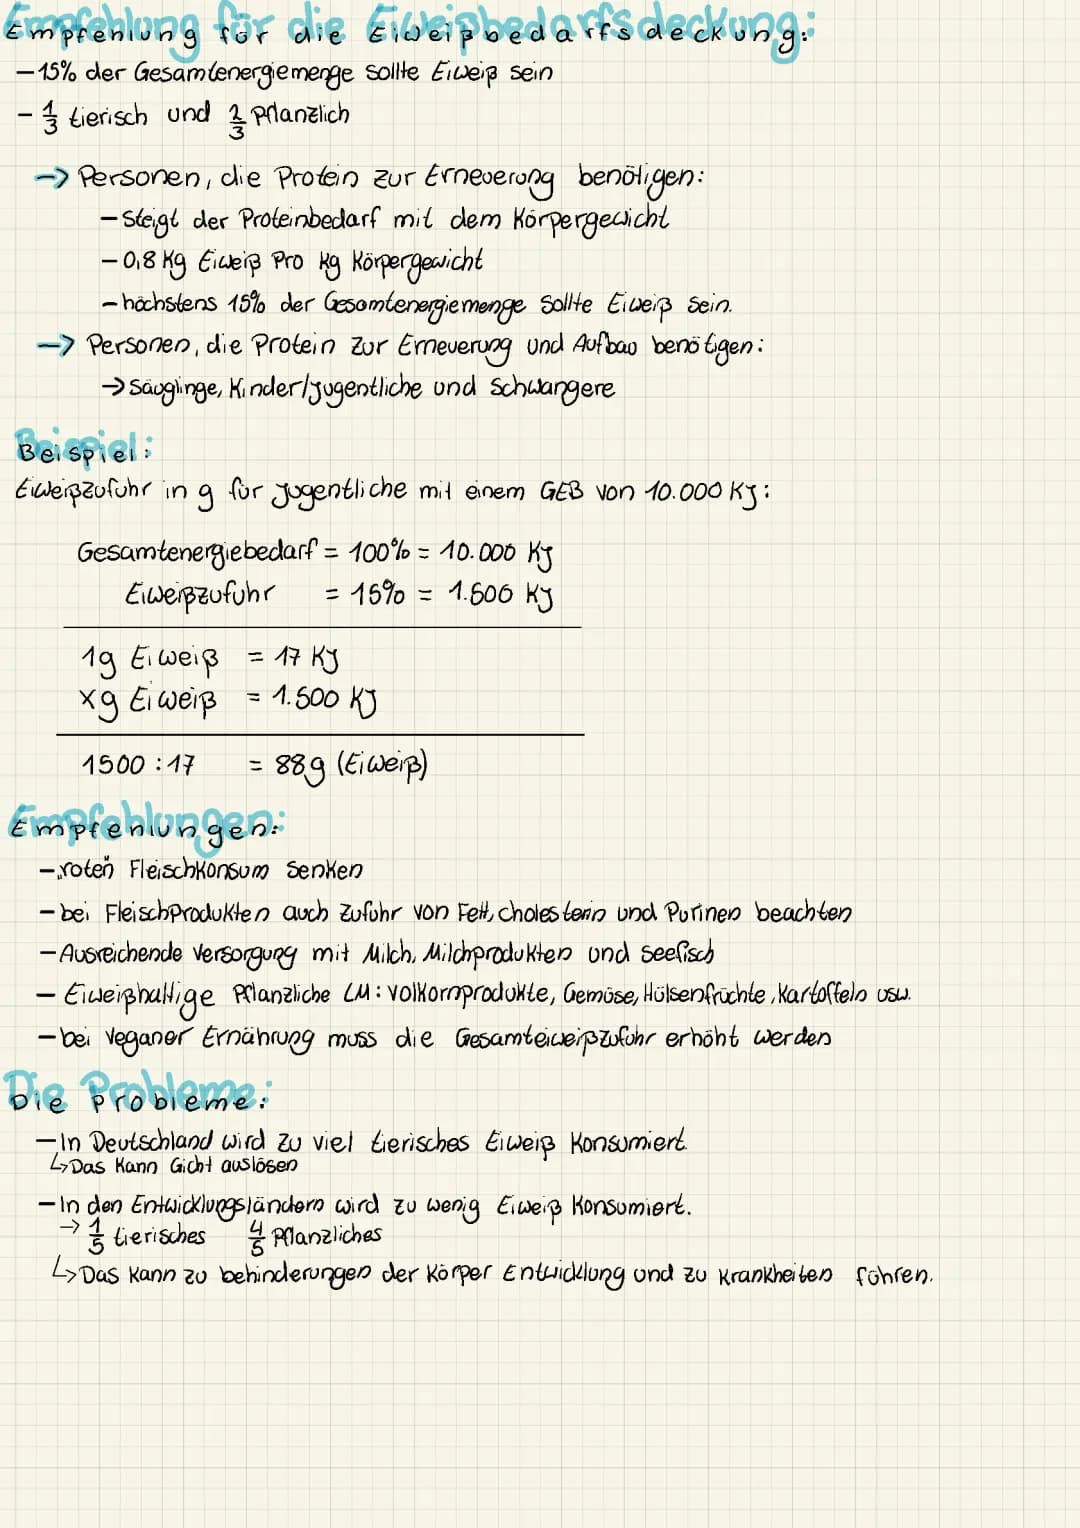 Empfehlung für die Eiweißbedarfsdeckung:
- 15% der Gesamtenergiemenge sollte Eiweiß sein
- 1/3 tierisch und 2/3 Pflanzlich
→ Personen, die Protein zur Erneuerung benötigen:
- steigt der Proteinbedarf mit dem Körpergewicht
- 0,8 Kg Eiweiß Pro Kg Körpergewicht
- höchstens 15% der Gesamtenergiemenge Sollte Eiweiß Sein.
→ Personen, die Protein Zur Erneuerung und Aufbau benötigen:
→ Säuglinge, Kinder/Jugentliche und Schwangere
Beispiel:
Eiweißzufuhr in g für Jugentliche mit einem GEB von 10.000 KJ:
Gesamtenergiebedarf = 100% = 10.000 KJ
Eiweißzufuhr = 15% = 1.500 KJ
1g Eiweiß = 17 KJ
xg Eiweiß = 1.500 KJ
1500 : 17 = 88g (Eiweiß)
Empfehlungen:
- „roten" Fleischkonsum Senken
- bei FleischProdukten auch Zufuhr von Fett, cholesterin und Purinen beachten
- Ausreichende Versorgung mit Milch, Milchprodukten und Seefisch
- Eiweißhaltige Pflanzliche LM: volkornprodukte, Gemüse, Hülsenfrüchte, Kartoffeln usw.
- bei veganer Ernährung muss die Gesamteiweißzufuhr erhöht werden
Die Probleme:
- In Deutschland wird zu viel tierisches Eiweiß Konsumiert.
↳ Das Kann Gicht auslösen
- In den Entwicklungsländern wird zu wenig Eiweiß Konsumiert.
→ 1/5 tierisches 4/5 Pflanzliches
↳ Das Kann zu behinderungen der Körper Entwicklung und zu Krankheiten führen.